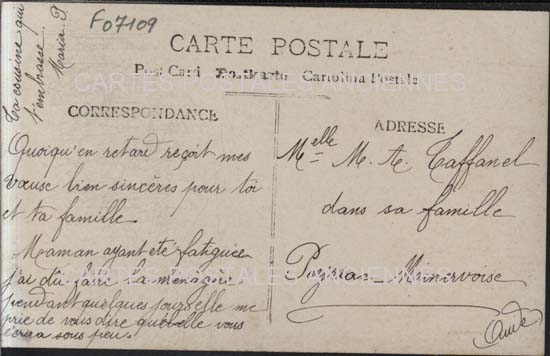 F07109
Ta cousine qui
t'embrasse.
Maria. P.
CARTE POSTALE
Post Card Postkarte Cartolina Postale
CARTES POSTALES ANCIENNES
CORRESPONDANCE
Quoiqu'en retard reçoit mes
vœux bien sincères pour toi
et ta famille.
Maman ayant été fatiguée
j'ai dû faire la ménagère
pendant quelques jours elle me
prie de vous dire qu'elle vous
écrira sous peu.
ADRESSE
Melle M. A. Taffanel
dans sa famille
Peyriac-Minervois
Aude
CARTES POSTALES ANCIENNES